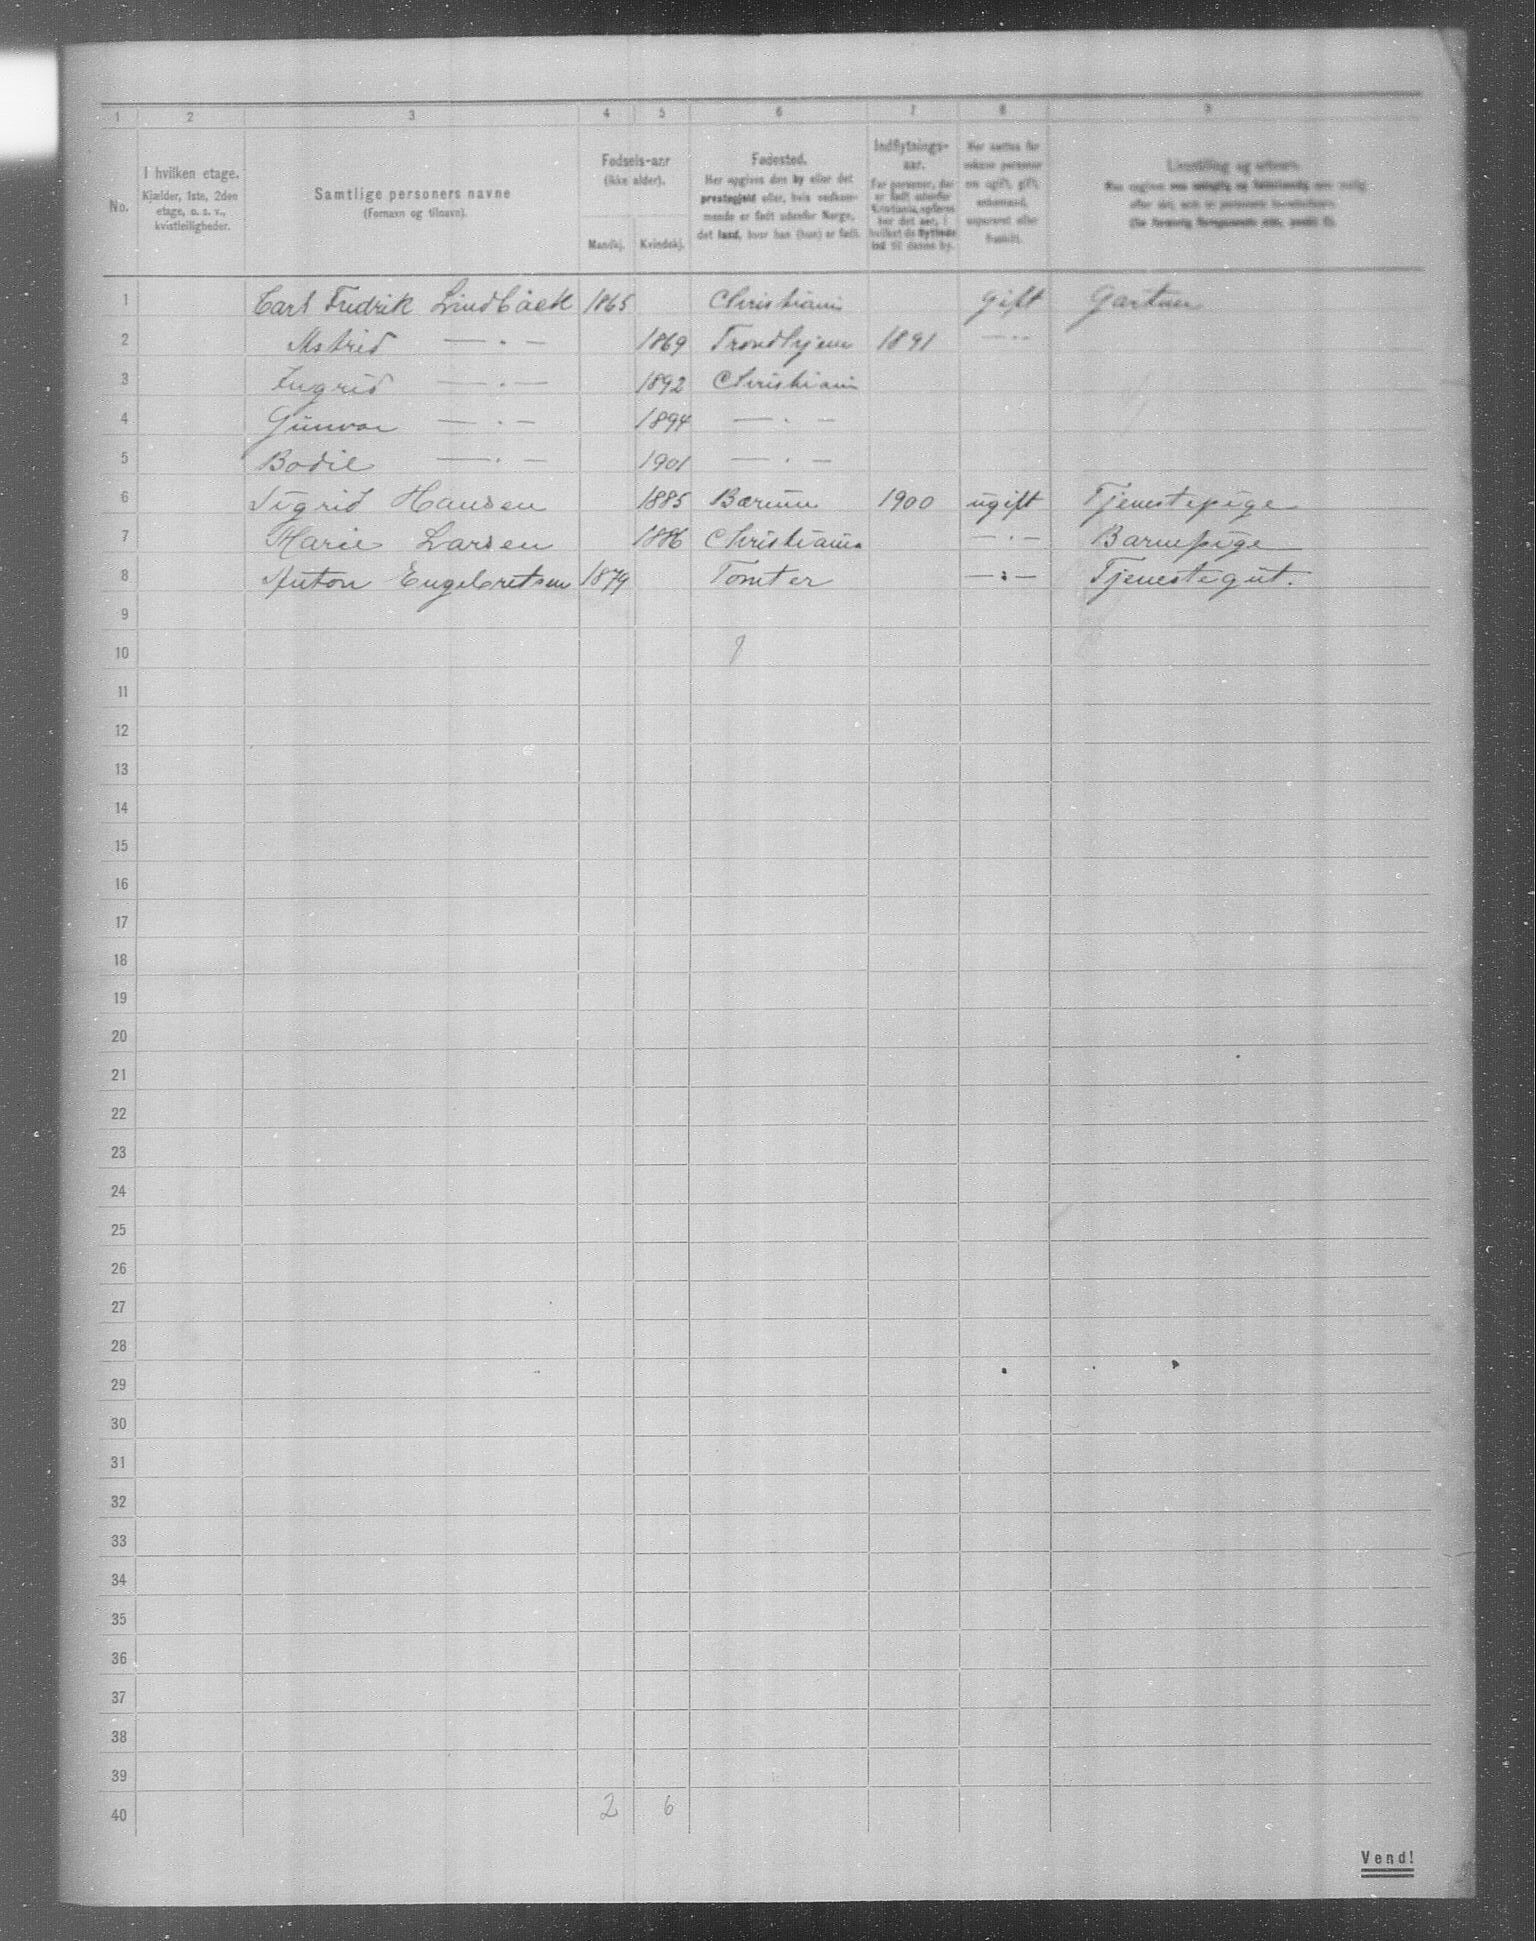 1 2 3 4 5 6 7 8 9
No.
I hvilken etage.
Kjælder, 1ste, 2den
etage, o. s. v.,
kvistleiligheder.
Samtlige personers navne
(Fornavn og tilnavn).
Fødsels-aar
(ikke alder).
Mandkj. Kvindekj.
Fødested.
Her opgives den by eller det
prestegjeld eller, hvis vedkom-
mende er født udenfor Norge,
det land, hvor han (hun) er født.
Indflytnings-
aar.
For personer, der
er født udenfor
Kristiania, opføres
her det aar, i
hvilket de flyttede
ind til denne by.
Her sættes for
voksne personer
om ugift, gift,
enkemand,
separeret eller
fraskilt.
Livsstilling og erhverv.
1 Carl Fredrik Lindbäck 1865 Christiania gift Gartner
2 Astrid — · — 1869 Trondhjem 1891 — · ·
3 Ingrid — · — 1892 Christiania
4 Gunvor — · — 1894 — · —
5 Bodil — · — 1901 — · —
6 Sigrid Hansen 1885 Bærum 1900 ugift Tjenestepige
7 Marie Larsen 1886 Christiania — · — Barnepige
8 Anton Engebretsen 1879 Tomter — · — Tjenestegut.
9
10
11
12
13
14
15
16
17
18
19
20
21
22
23
24
25
26
27
28
29
30
31
32
33
34
35
36
37
38
39
40 2 6
Vend!